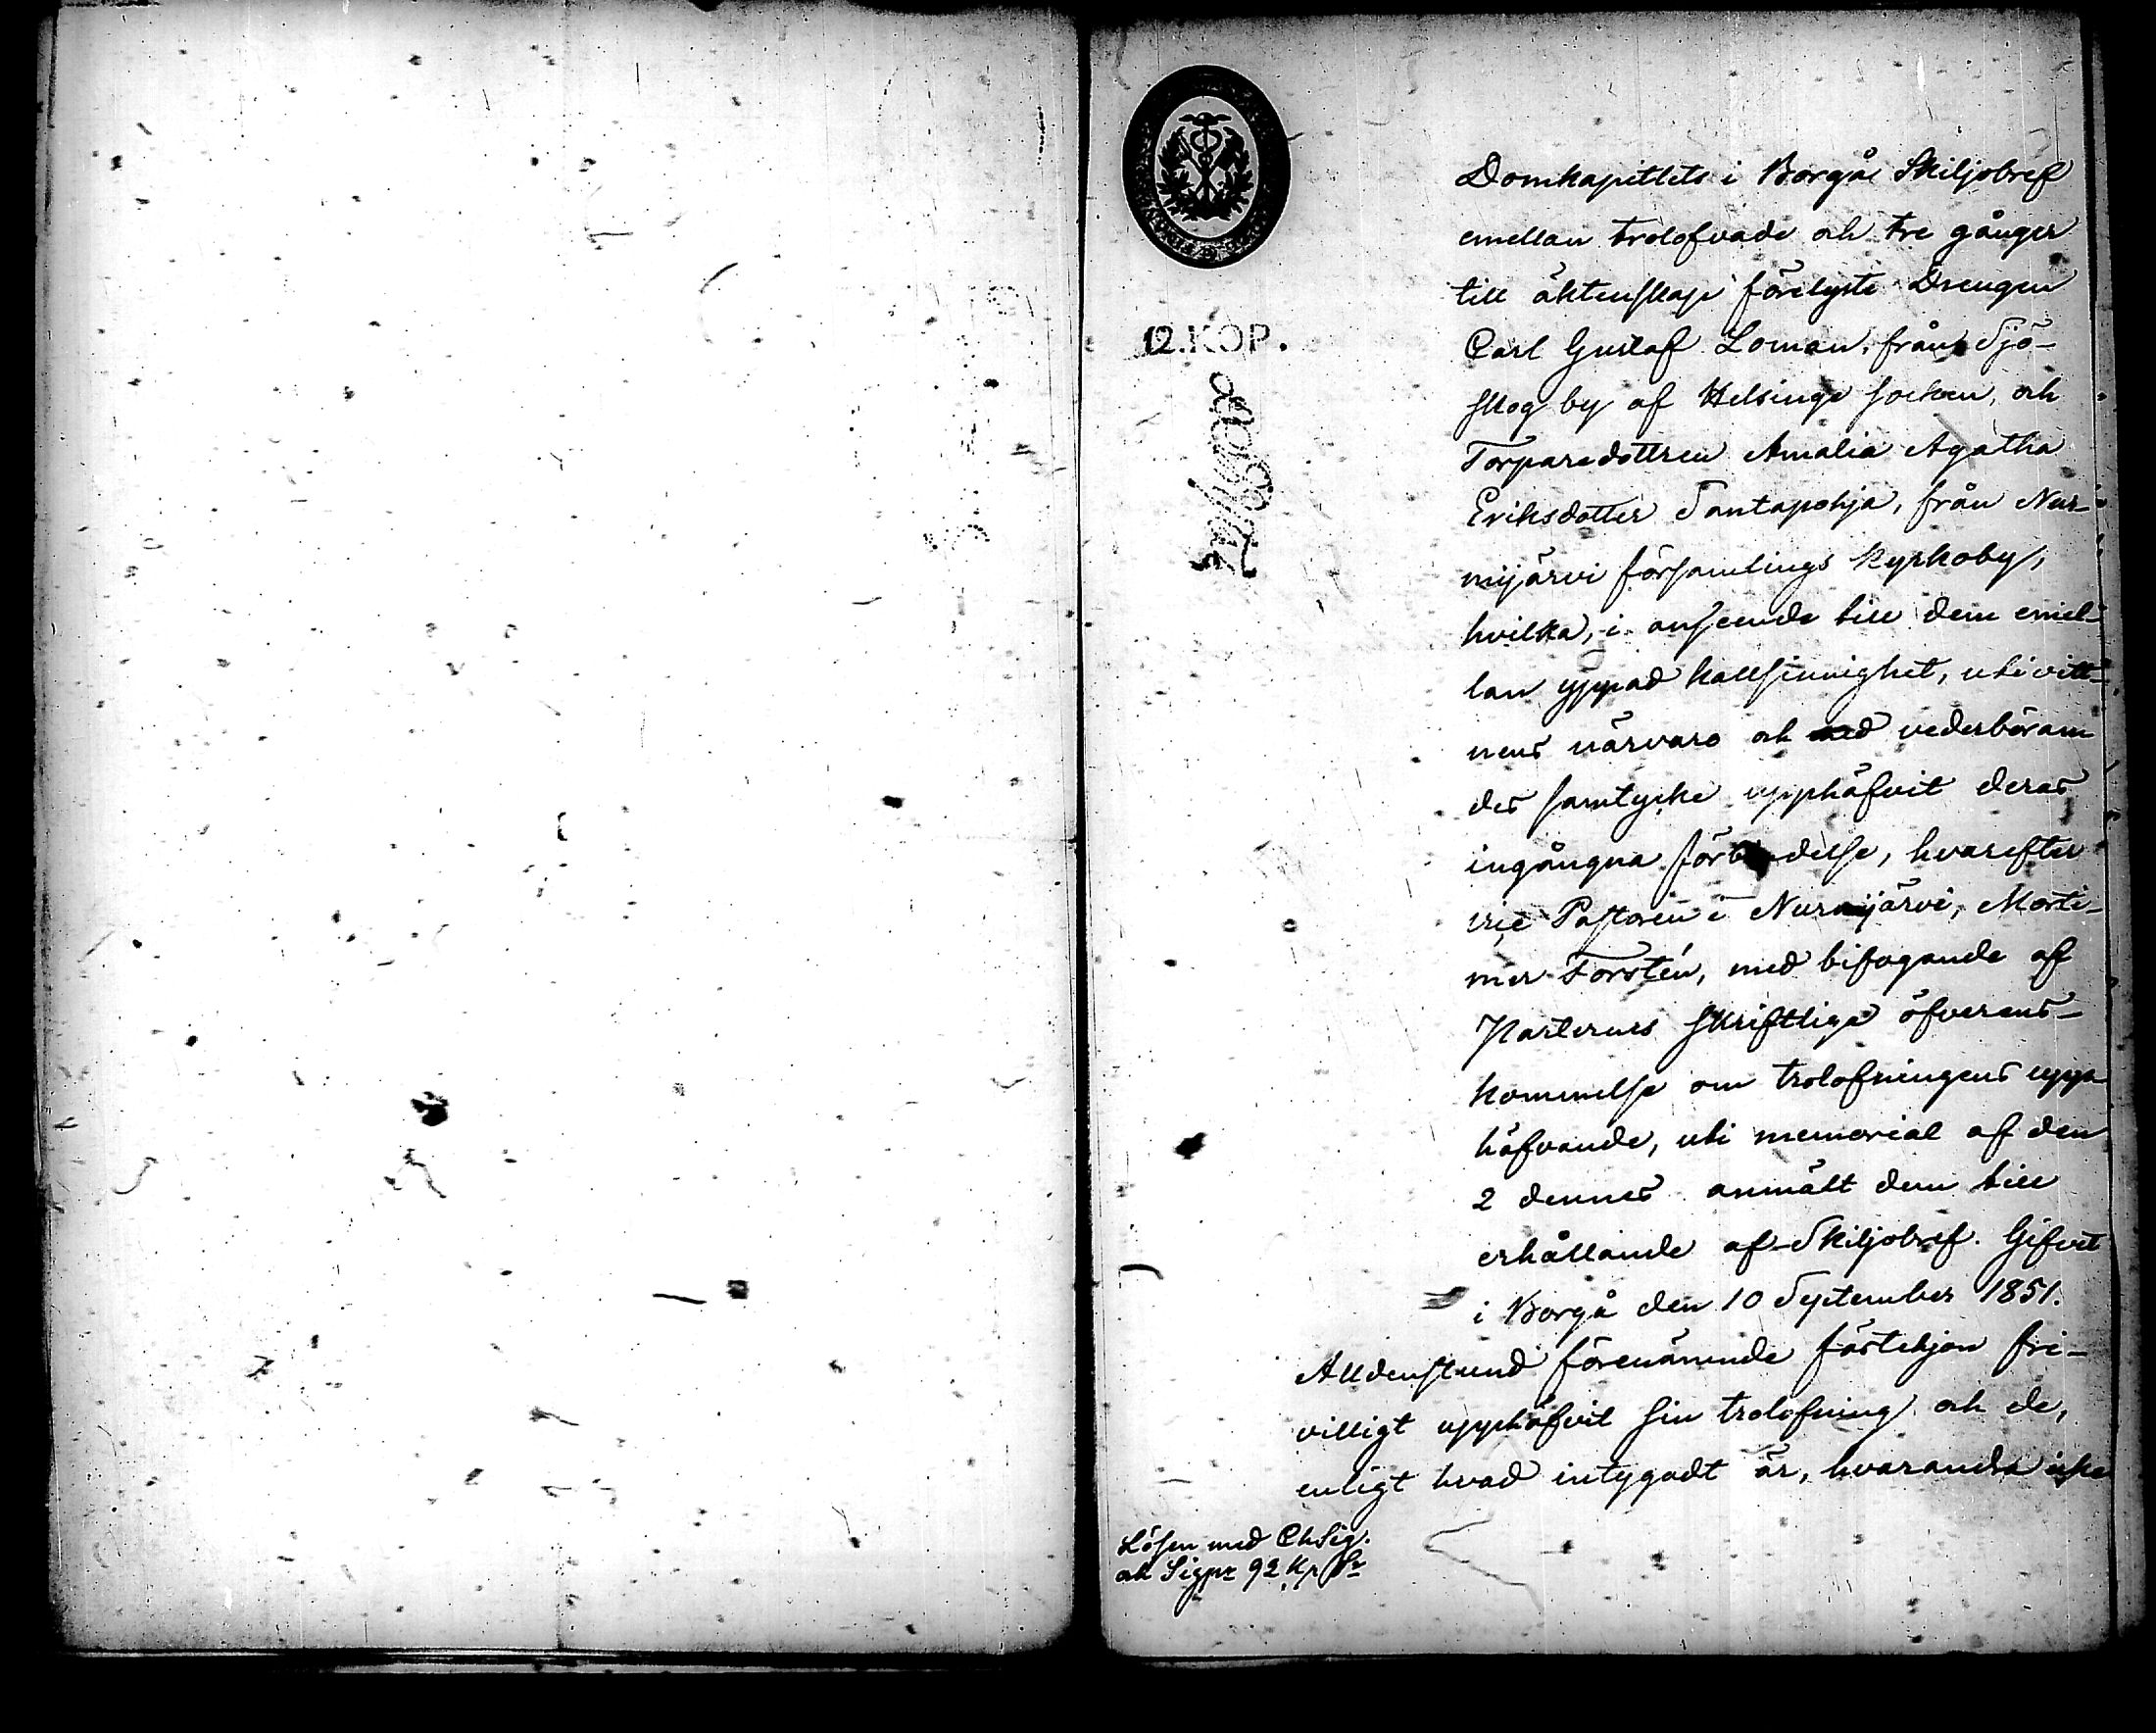 12. KOP.
Domkapitlets i Borgå Skiljobref
emellan trolofvade och tre gånger
till äktenskap förelyste Drengen
Carl Gustaf Loman, från Sjö-
skog by af Helsinge socken, och
Torparedottren Amalia Agatha
Eriksdotter Santapohja, från Nur-
mijärvi församlings Kyrkoby,
hvilka, i anseende till dem emel-
lan yppad kallsinnighet, uti vitt-
nens närvaro och med vederböran-
des samtycke upphäfvit deras
ingångna förbindelse, hvarefter
vice Pastorn i Nurmijärvi, Morti-
mer Forstén, med bifogande af
Parternes skriftliga öfverens-
kommelse om trolofningens upp-
häfvande, uti memorial af den
2 dennes anmält dem till
erhållande af Skiljobref. Gifvet
i Borgå den 10 September 1851.
Alldenstund förenämnde fästehjon fri-
villigt upphäfvit sin trolofning och de,
enligt hvad intygadt är, hvarandra icke
Lösen med ChSig.
och Sigpr 92 Kp Sr